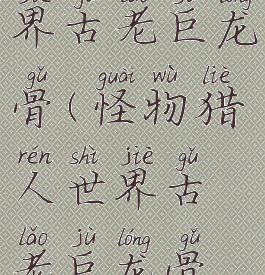 界古老巨龙
gǔ guài wù liè
骨(怪物猎
rén shì jiè gǔ
人世界古
lǎo jù lóng gǔ
老巨龙骨